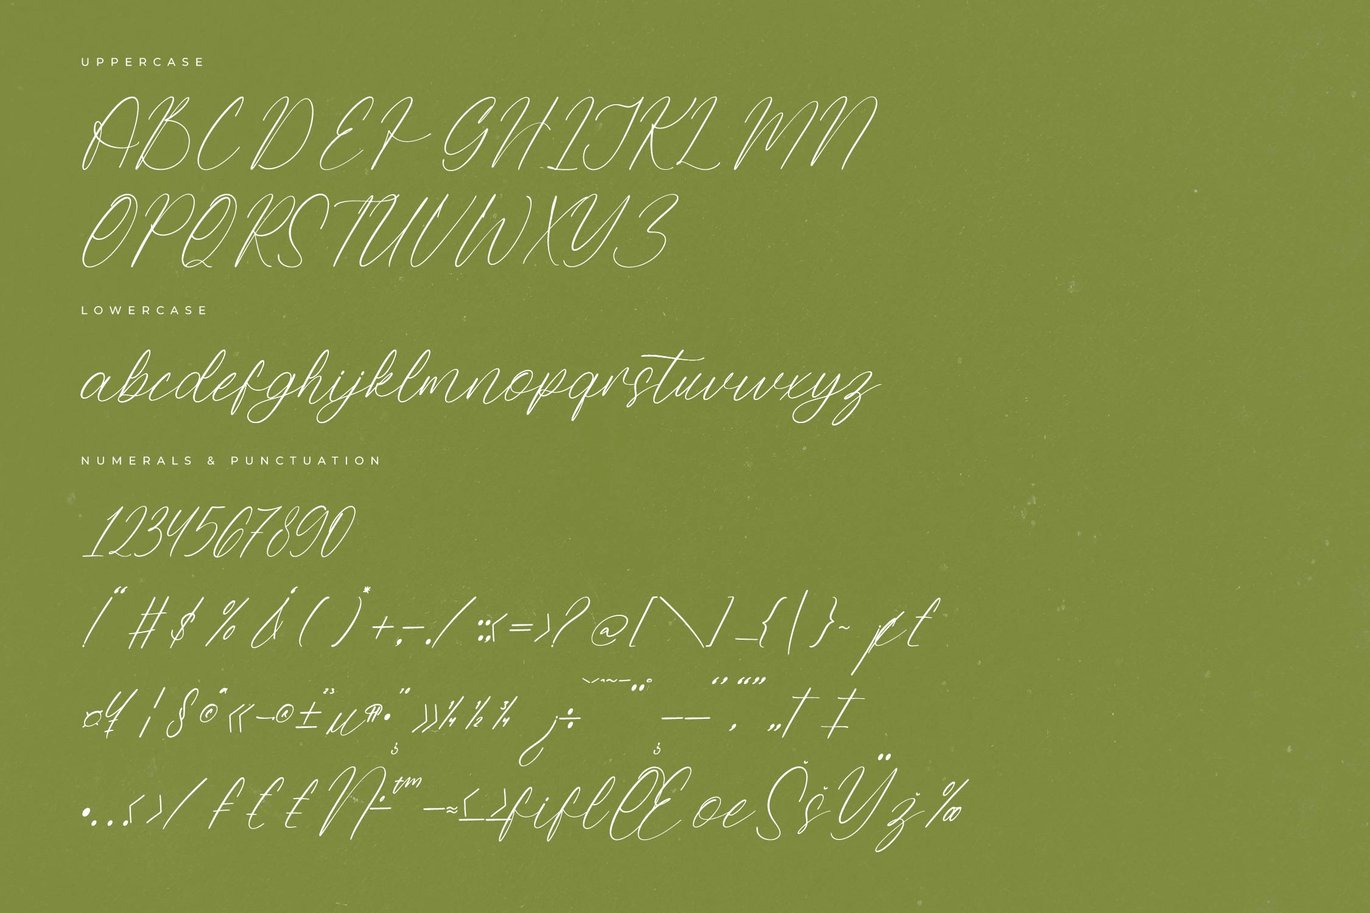 UPPERCASE
ABCDEFGHIJKLMN
OPQRSTUVWXYZ
LOWERCASE
abcdefghijklmnopqrstuvwxyz
NUMERALS & PUNCTUATION
1234567890
!"#$%&'()*+,-./:;<=>?@[\]_{|}~
¤¥¦§¨©ª«-®±²³µ¶•¸¹º»¼½¾¿÷ — — ‘’‚“”„†‡
•...‹›/ ™−≈≤≥fiflŒœŠšŸž‰